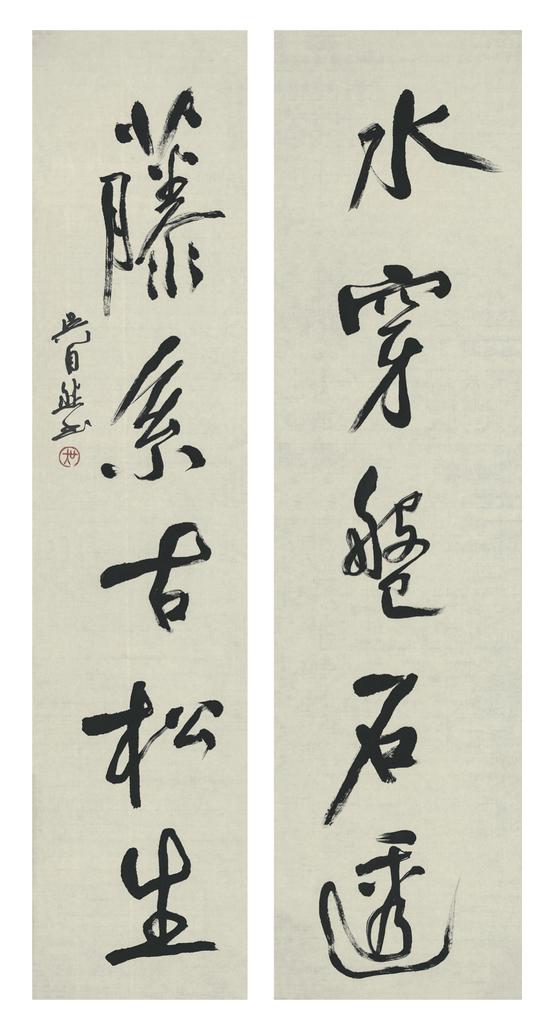 水穿盤石透
藤系古松生